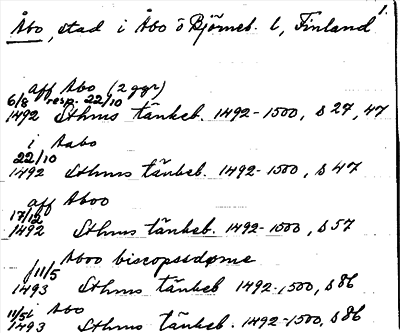 1.
Åbo, stad i Åbo o Björneb. l, Finland
aff Abo (2 ggr)
6/8 resp. 22/10
1492 Sthms tänkeb. 1492-1500, s 27, 47
i Aabo
22/10
1492 Sthms tänkeb. 1492-1500, s 47
aff Aboo
17/12
1492 Sthms tänkeb. 1492-1500, s 57
Aboo biscopsdøme
11/5
1493 Sthms tänkeb 1492-1500, s 86
11/5 i Abo
1493 Sthms tänkeb 1492-1500, s 86